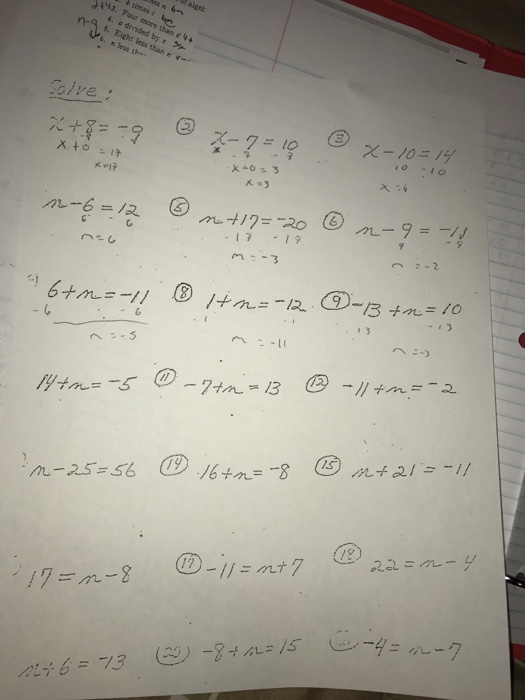 Four more than d 4+
divided by
Eight less than n
n-9
Solve:
x+8=-9 ② x-7=10 ③ x-10=14
-8 - 7 - 7 10 -10
x+0 = 17 x+0 = 3 x = 4
x=17 x = 3
n-6=12 ⑤ n+17=-20 ⑥ n-9=-11
6 - 6 -17 -17 9 -9
n=6 n=-3 n=-2
6+n=-11 ⑧ 1+n=-12 ⑨ -13+n=10
-6 - 6 1 -1 13 -13
n=-5 n=-11 n=-3
14+n=-5 ⑪ -7+n=13 ⑫ -11+n=-2
n-25=56 ⑭ 16+n=-8 ⑮ n+21=-11
17=n-8 ⑰ -11=n+7 ⑱ 22=n-4
n+6=-13 ⑳ -8+n=15 -4=n-7